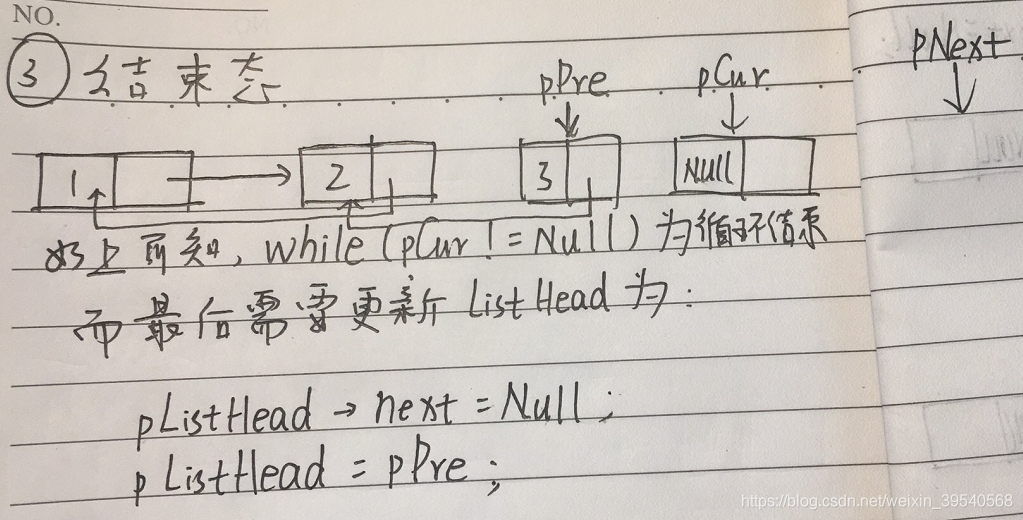 NO.
③ 结束态
pPre pCur pNext
1 2 3 Null
如上所知, while (pCur != Null) 为循环结束
而最后需要更新 ListHead 为:
pListHead → next = Null;
pListHead = pPre;
https://blog.csdn.net/weixin_39540568